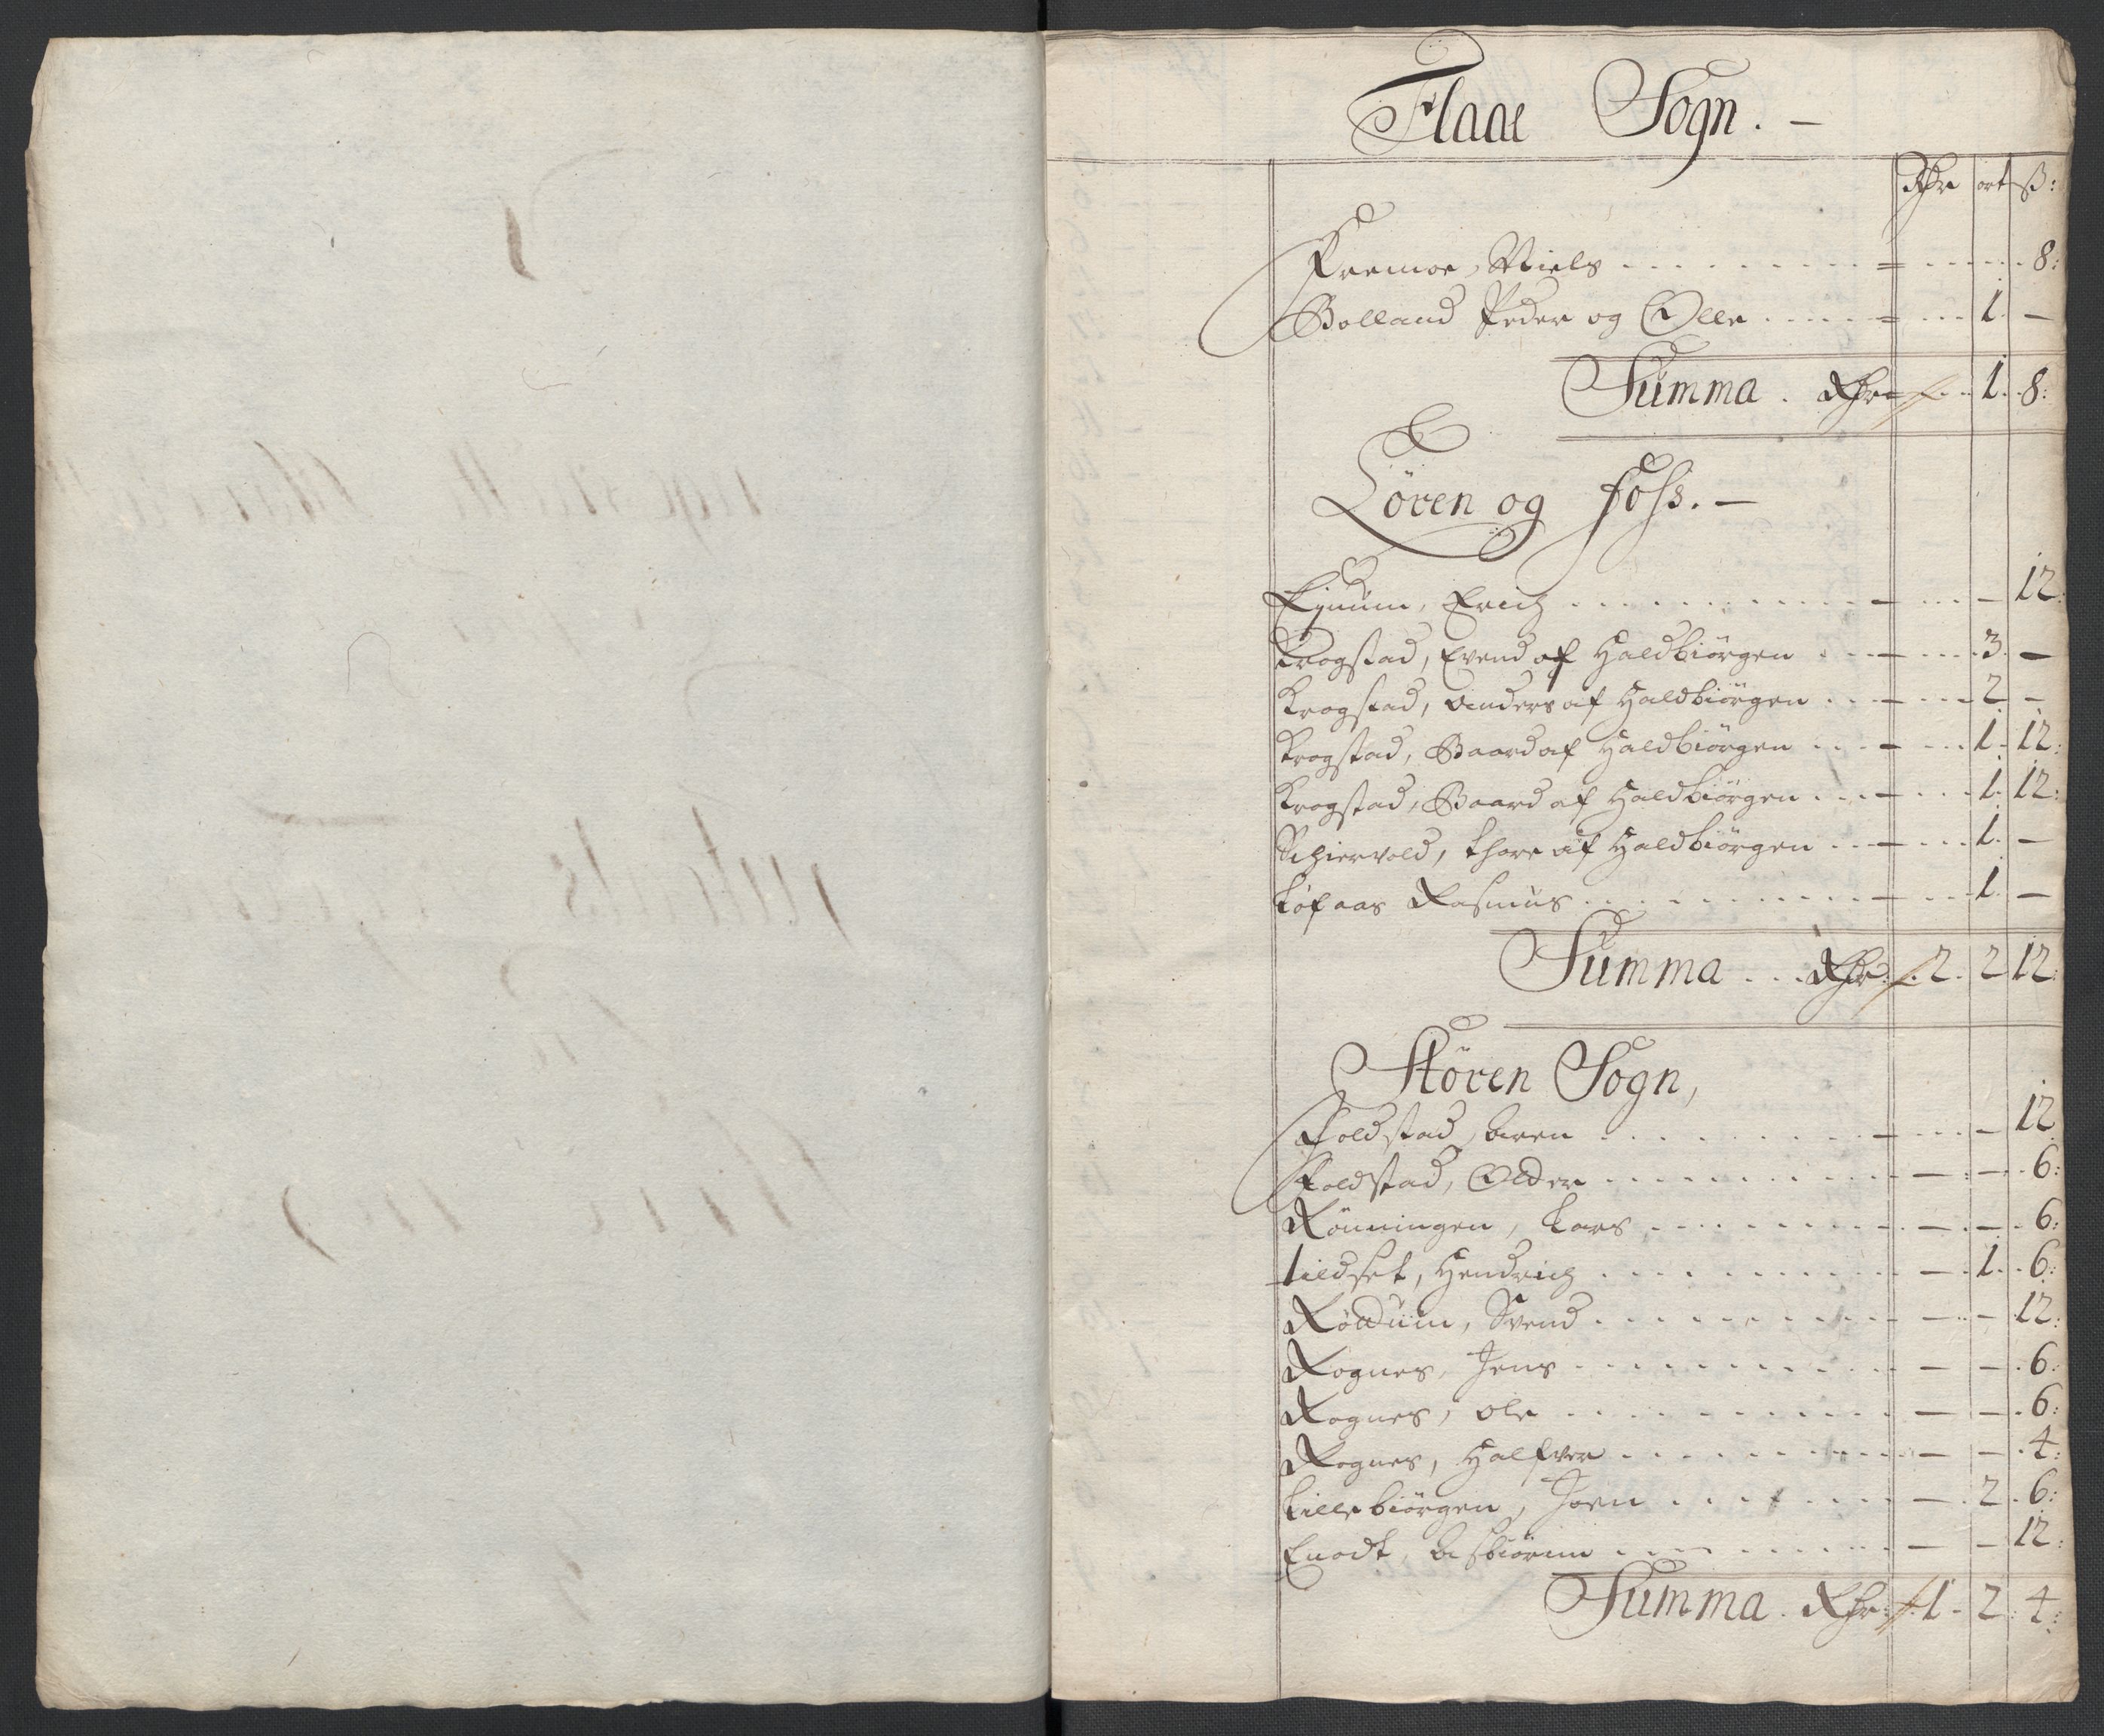 Flaae Sogn. —
Rdr ort ß:
Fremoe, Niels . . . . . . . . = . . . . . . 8:
Bolland Peder og Olle . . . . . = . . . 1. —
Summa . Rdr . . 1. 8:
Lören og Foss. —
Eynum, Erich . . . . . . . . . . . — . . . — 12
Krogstad, Evend af Haldbiörgen . . . — . . . 3. —
Krogstad, Anders af Haldbiörgen . . . — . . . 2 —
Krogstad, Baard af Haldbiörgen . . . . — . . . 1. 12:
Krogstad, Baard af Haldbiörgen . . . . — . . . 1. 12:
Schiervold, Thore af Haldbiörgen . . . — . . . 1. —
Løfaas Rasmus . . . . . . . . . . . — . . . 1. —
Summa . . . Rdr . 2. 2 12:
Stören Sogn,
Foldstad, Aren . . . . . . . . . . — . . . — 12
Foldstad, Older . . . . . . . . . . . — . — . 6:
Rönningen, Lars . . . . . . . . . . — . — . 6:
Tildset, Hendrich . . . . . . . . . . . — . 1. . 6:
Röddum, Svend . . . . . . . . . . . — . — 12:
Rognes, Jens . . . . . . . . . . . — — . 6:
Rognes, Ole . . . . . . . . . . . . — — . 6:
Rognes, Halfver . . . . . . . . . . — — . 4:
Lillebiörgen, Joen . . . . . . . . — . 2 . 6:
Enodt, Asbiörnn . . . . . . . . . . — — 12:
Summa . Rdr: 1. 2: 4: